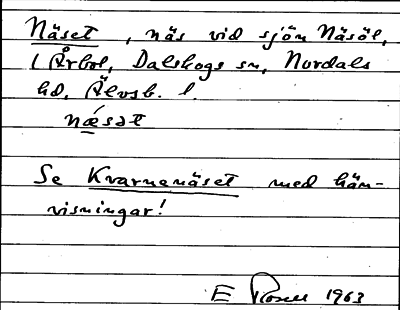 Näset, näs vid sjön Näsöl,
i Årbol, Dalskogs sn, Nordals
hd, Älvsb. l.
næ̀sət
Se Kvarnenäset med hän-
visningar!
E Rosell 1963